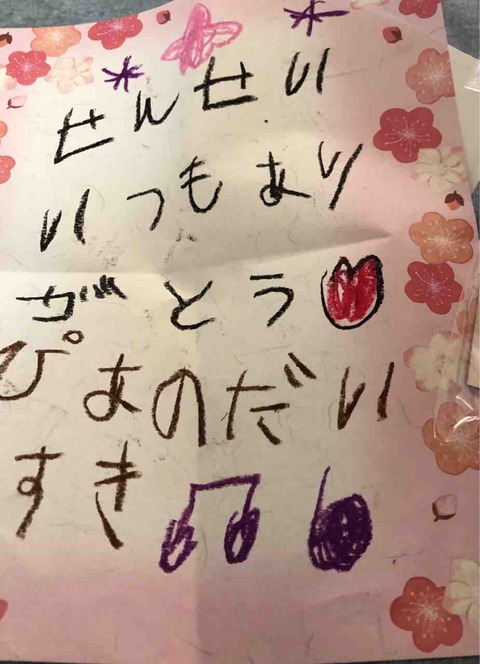 せんせい
いつもあり
がとう
ぴあのだい
すき